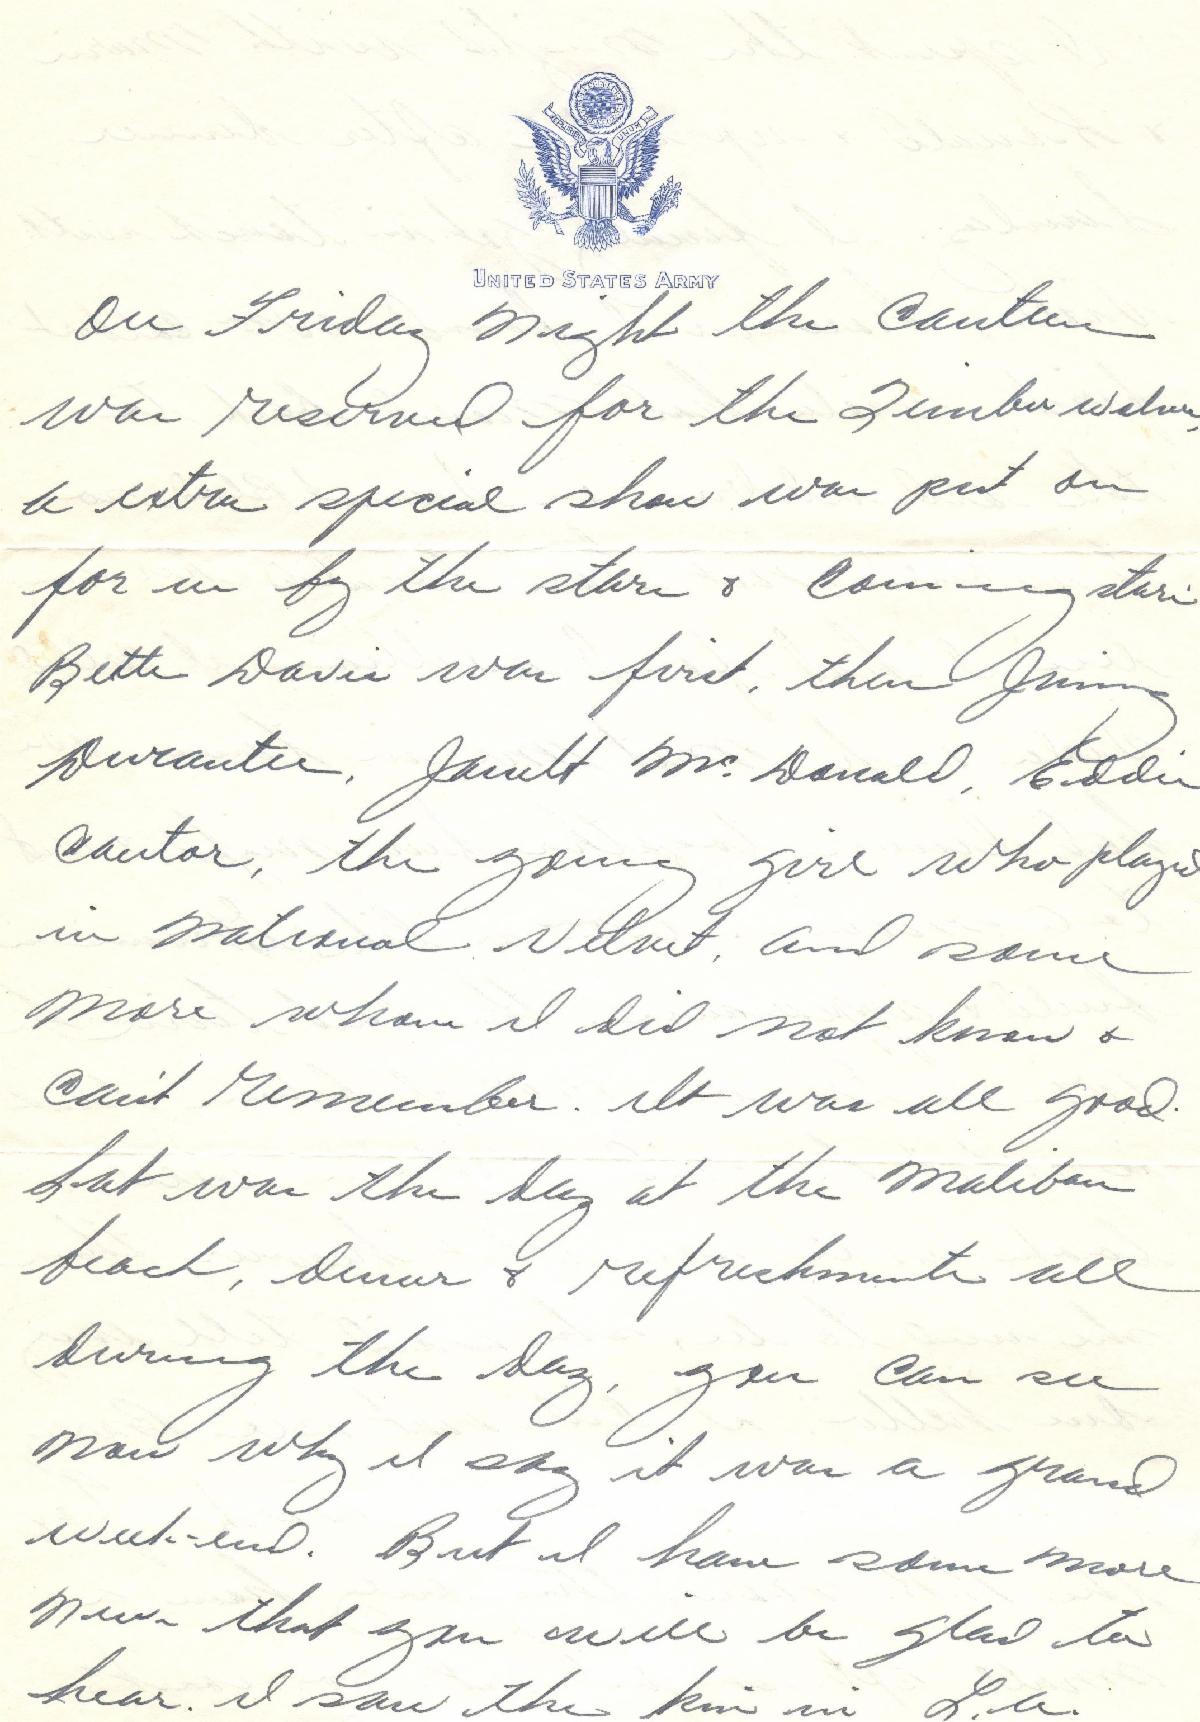 E PLURIBUS UNUM
UNITED STATES ARMY
On Friday Night the Canteen
was reserved for the Timberwolves,
a extra special show was put on
for us by the stars & coming stars
Bette Davis was first, then Jimmy
Durantee, Janett Mc. Donald, Eddie
Cantor, the young girl who played
in National Velvet, and some
more whom I did not know &
can't remember. It was all good.
Sat was the day at the Malibau
beach, dinner & refreshments all
during the day, you can see
now why I say it was a grand
week-end. But I have some more
News that you will be glad to
hear. I saw the kin in L.A.